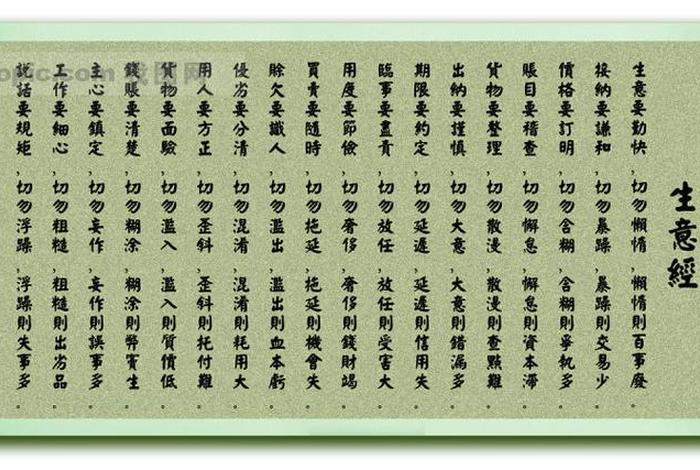 生意經
生意要勤快,切勿懶惰,懶惰則百事廢。
接納要謙和,切勿暴躁,暴躁則交易少。
價格要訂明,切勿含糊,含糊則爭執多。
賬目要稽查,切勿懈怠,懈怠則資本滯。
貨物要整理,切勿散漫,散漫則查點難。
出納要謹慎,切勿大意,大意則錯漏多。
期限要約定,切勿延遲,延遲則信用失。
臨事要盡責,切勿放任,放任則受害大。
用度要節儉,切勿奢侈,奢侈則錢財竭。
買賣要隨時,切勿拖延,拖延則機會失。
賒欠要識人,切勿濫出,濫出則血本虧。
優劣要分清,切勿混淆,混淆則耗用大。
用人要方正,切勿歪斜,歪斜則托付難。
貨物要面驗,切勿濫入,濫入則質價低。
錢賬要清楚,切勿糊涂,糊涂則弊竇生。
主心要鎮定,切勿妄作,妄作則誤事多。
工作要細心,切勿粗糙,粗糙則出劣品。
說話要規矩,切勿浮躁,浮躁則失事多。
opic.com 我图网